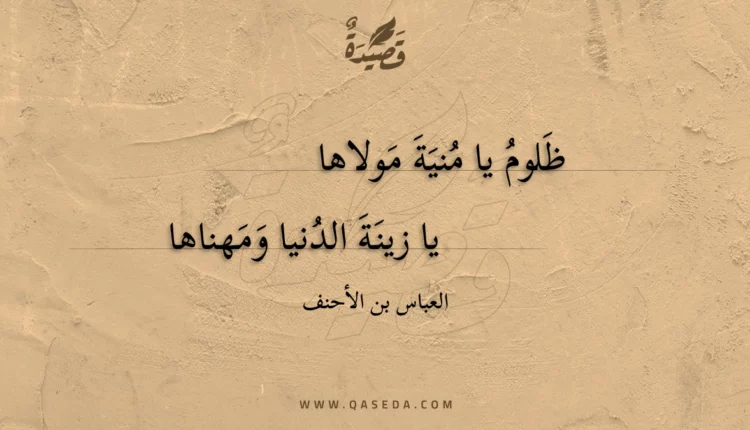 قَصِيْدَةٌ
ظَلومُ يا مُنيَةَ مَولاها
يا زينَةَ الدُنيا وَمَهناها
العباس بن الأحنف
WWW.QASEDA.COM